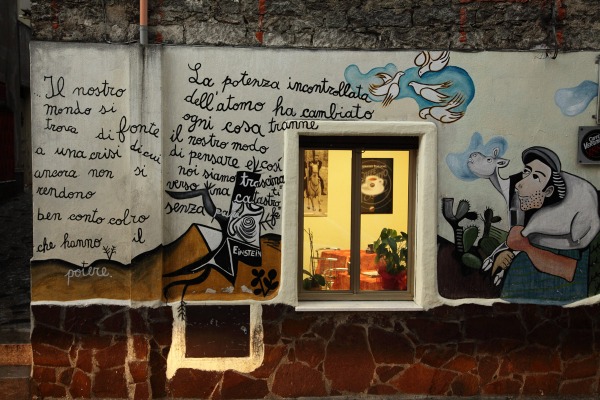 Il nostro
mondo si
trova di fronte
a una crisi di cui
ancora non si
rendono
ben conto colro
che hanno il
potere.
La potenza incontrollata
dell'atomo ha cambiato
ogni cosa tranne
il nostro modo
di pensare e così
noi siamo trascinati
verso una catastrofe
senza
EINSTEIN